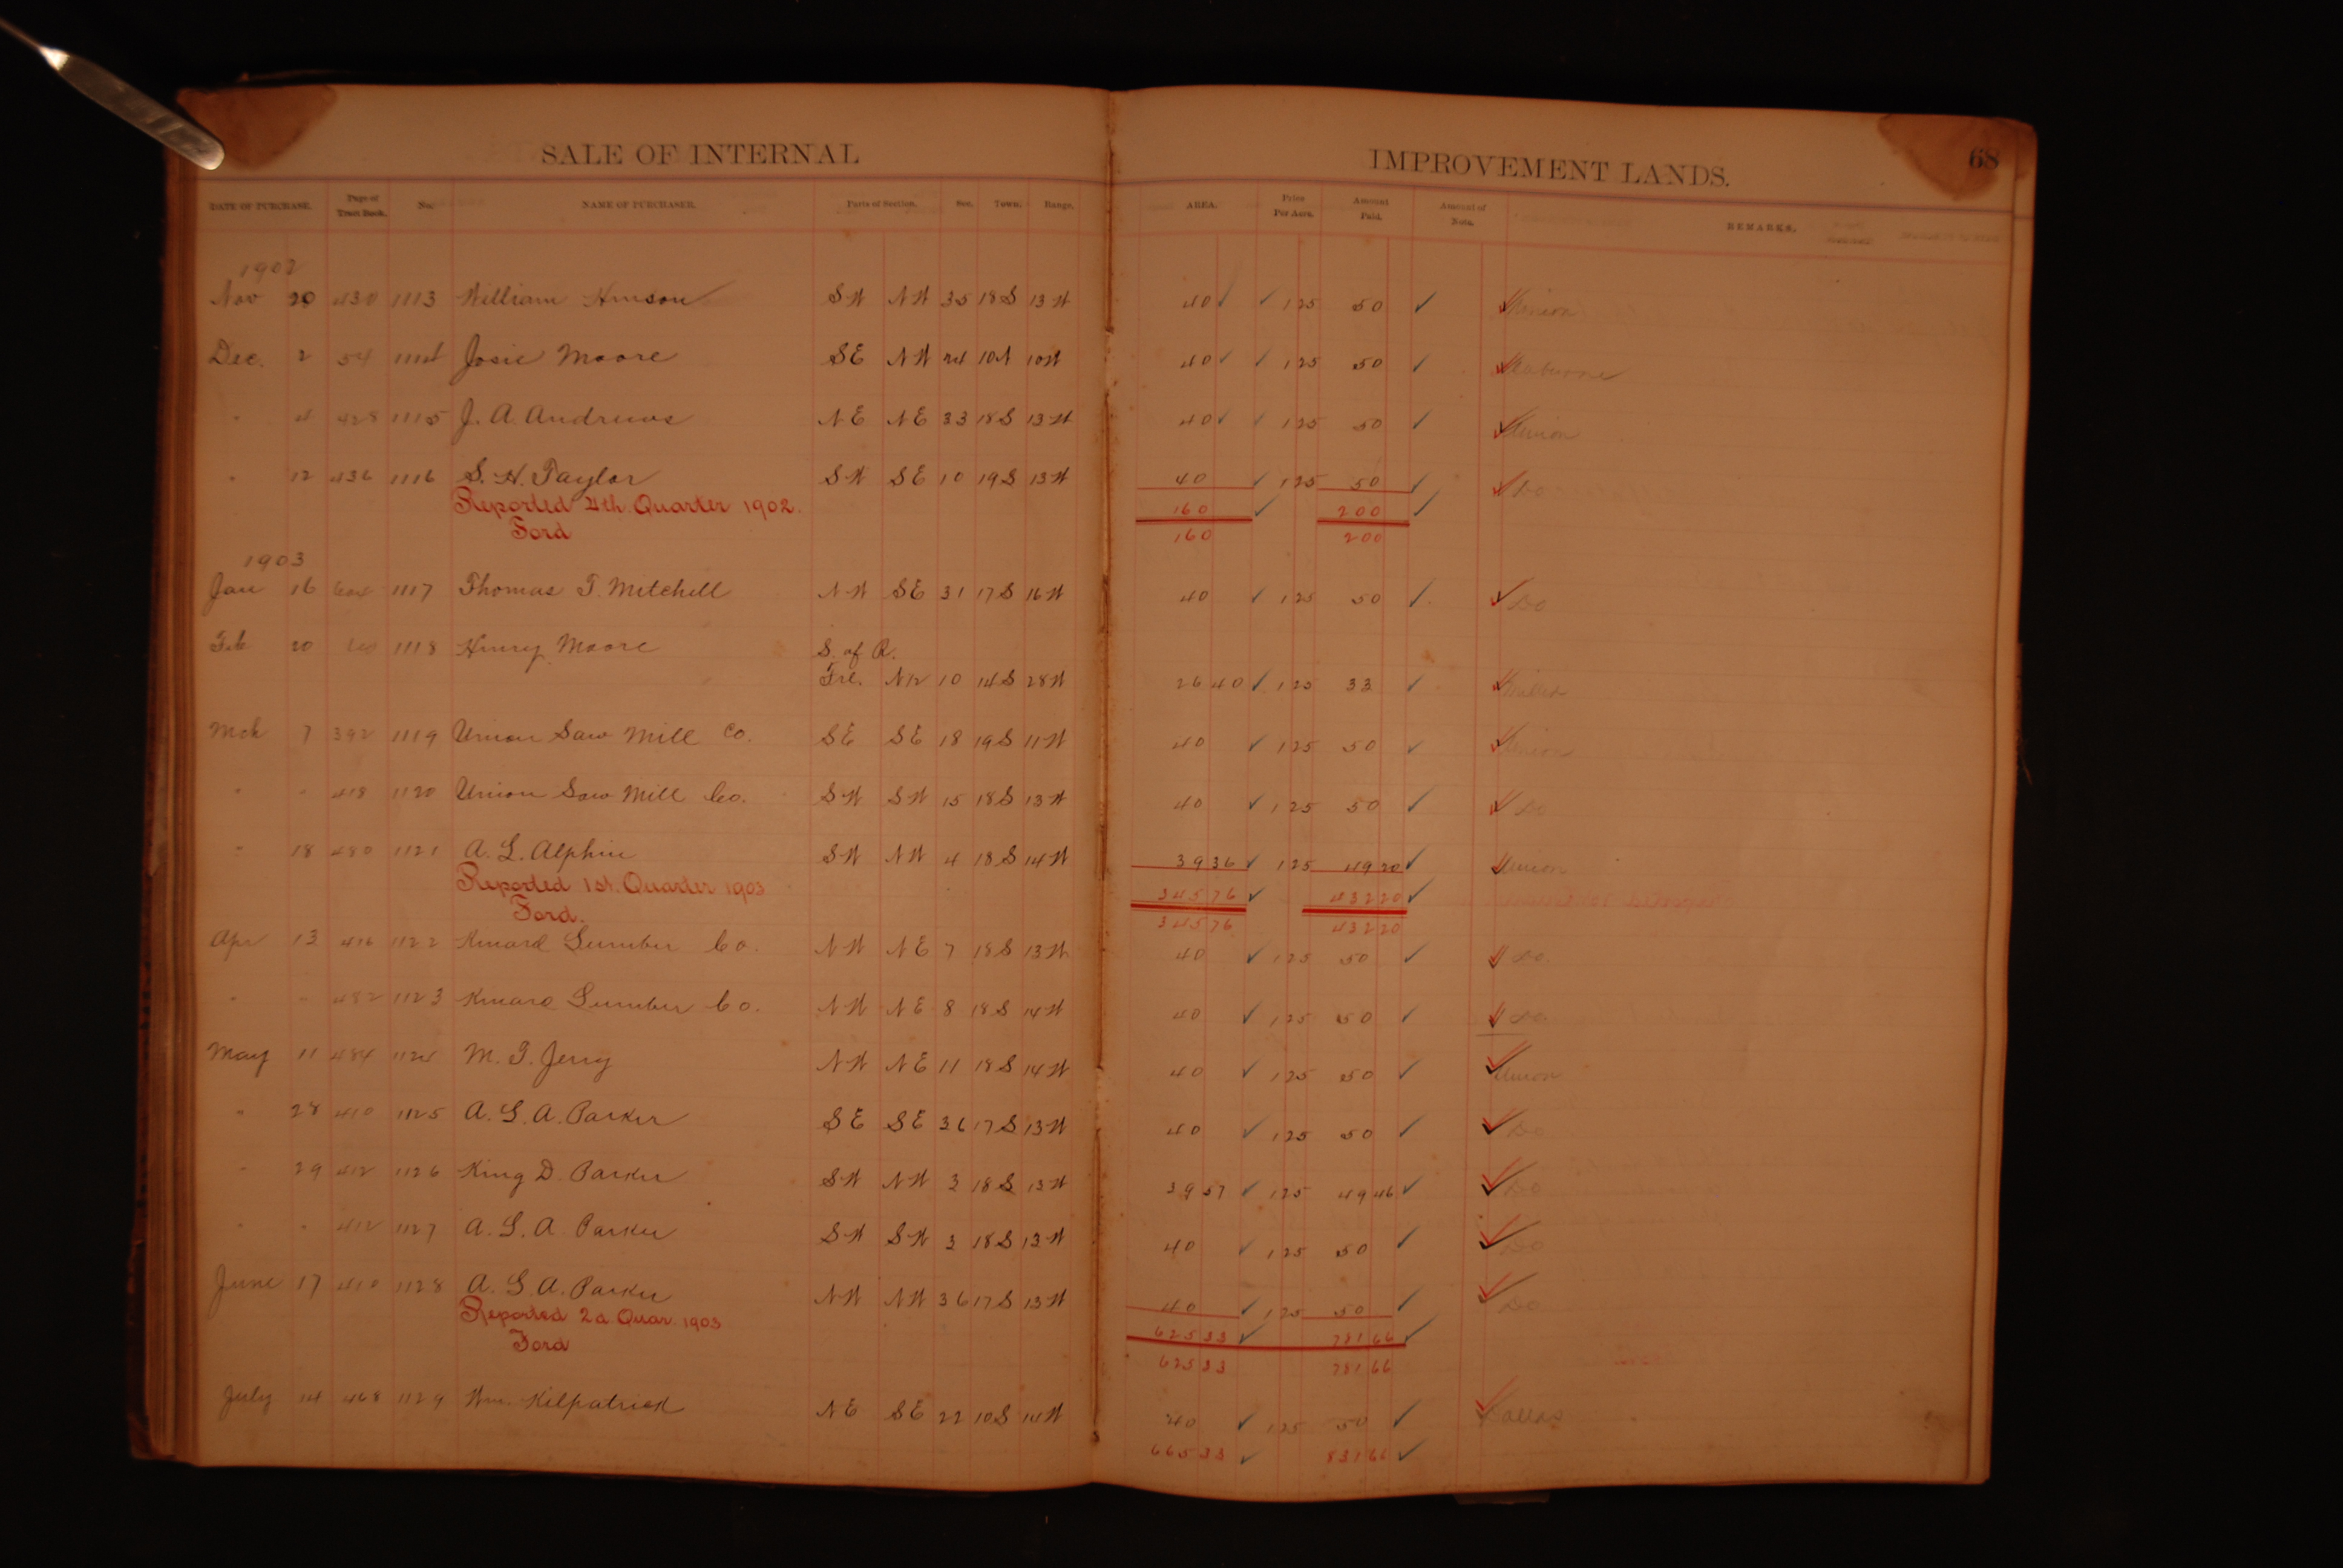 SALE OF INTERNAL IMPROVEMENT LANDS. 68
DATE OF PURCHASE. Page of Tract Book. No. NAME OF PURCHASER. Parts of Section. Sec. Town. Range. AREA. Price Per Acre. Amount Paid. Amount of Note. REMARKS.
1902
Nov 20 430 1113 William Hinson SW NW 35 18S 13W 40 125 50 Union
Dec. 2 54 1114 Josie Moore SE NW 24 10N 10W 40 125 50 Cleburne
" 4 428 1115 J. A. Andrews NE NE 33 18S 13W 40 125 50 Union
" 12 436 1116 S. H. Taylor SW SE 10 19S 13W 40 125 50 Do
Reported 4th. Quarter 1902. 160 200
Ford 160 200
1903
Jan 16 1117 Thomas T. Mitchell NW SE 31 17S 16W 40 125 50 Do
Feb 20 1118 Henry Moore S. of R.
Frl. N1/2 10 14S 28W 26 40 125 33 Miller
Mch 7 392 1119 Union Saw Mill Co. SE SE 18 19S 11W 40 125 50 Union
" " 418 1120 Union Saw Mill Co. SW SW 15 18S 13W 40 125 50 Do
" 18 480 1121 A. L. Alphin SW NW 4 18S 14W 39 36 125 49 20 Union
Reported 1st. Quarter 1903 345 76 432 20
Ford. 345 76 432 20
Apr 13 416 1122 Kinard Lumber Co. NW NE 7 18S 13W 40 125 50 Do.
" " 482 1123 Kinard Lumber Co. NW NE 8 18S 14W 40 125 50 Do.
May 11 484 1124 M. T. Jerry NW NE 11 18S 14W 40 125 50 Union
" 28 410 1125 A. G. A. Parker SE SE 36 17S 13W 40 125 50 Do
" 29 412 1126 King D. Parker SW NW 3 18S 13W 39 57 125 49 46 Do
" " 412 1127 A. G. A. Parker SW SW 3 18S 13W 40 125 50 Do
June 17 410 1128 A. G. A. Parker NW NW 36 17S 13W 40 125 50 Do
Reported 2d. Quar. 1903 625 33 781 66
Ford 625 33 781 66
July 14 468 1129 Wm. Kilpatrick NE SE 22 10S 14W 40 125 50 Dallas
665 33 831 66